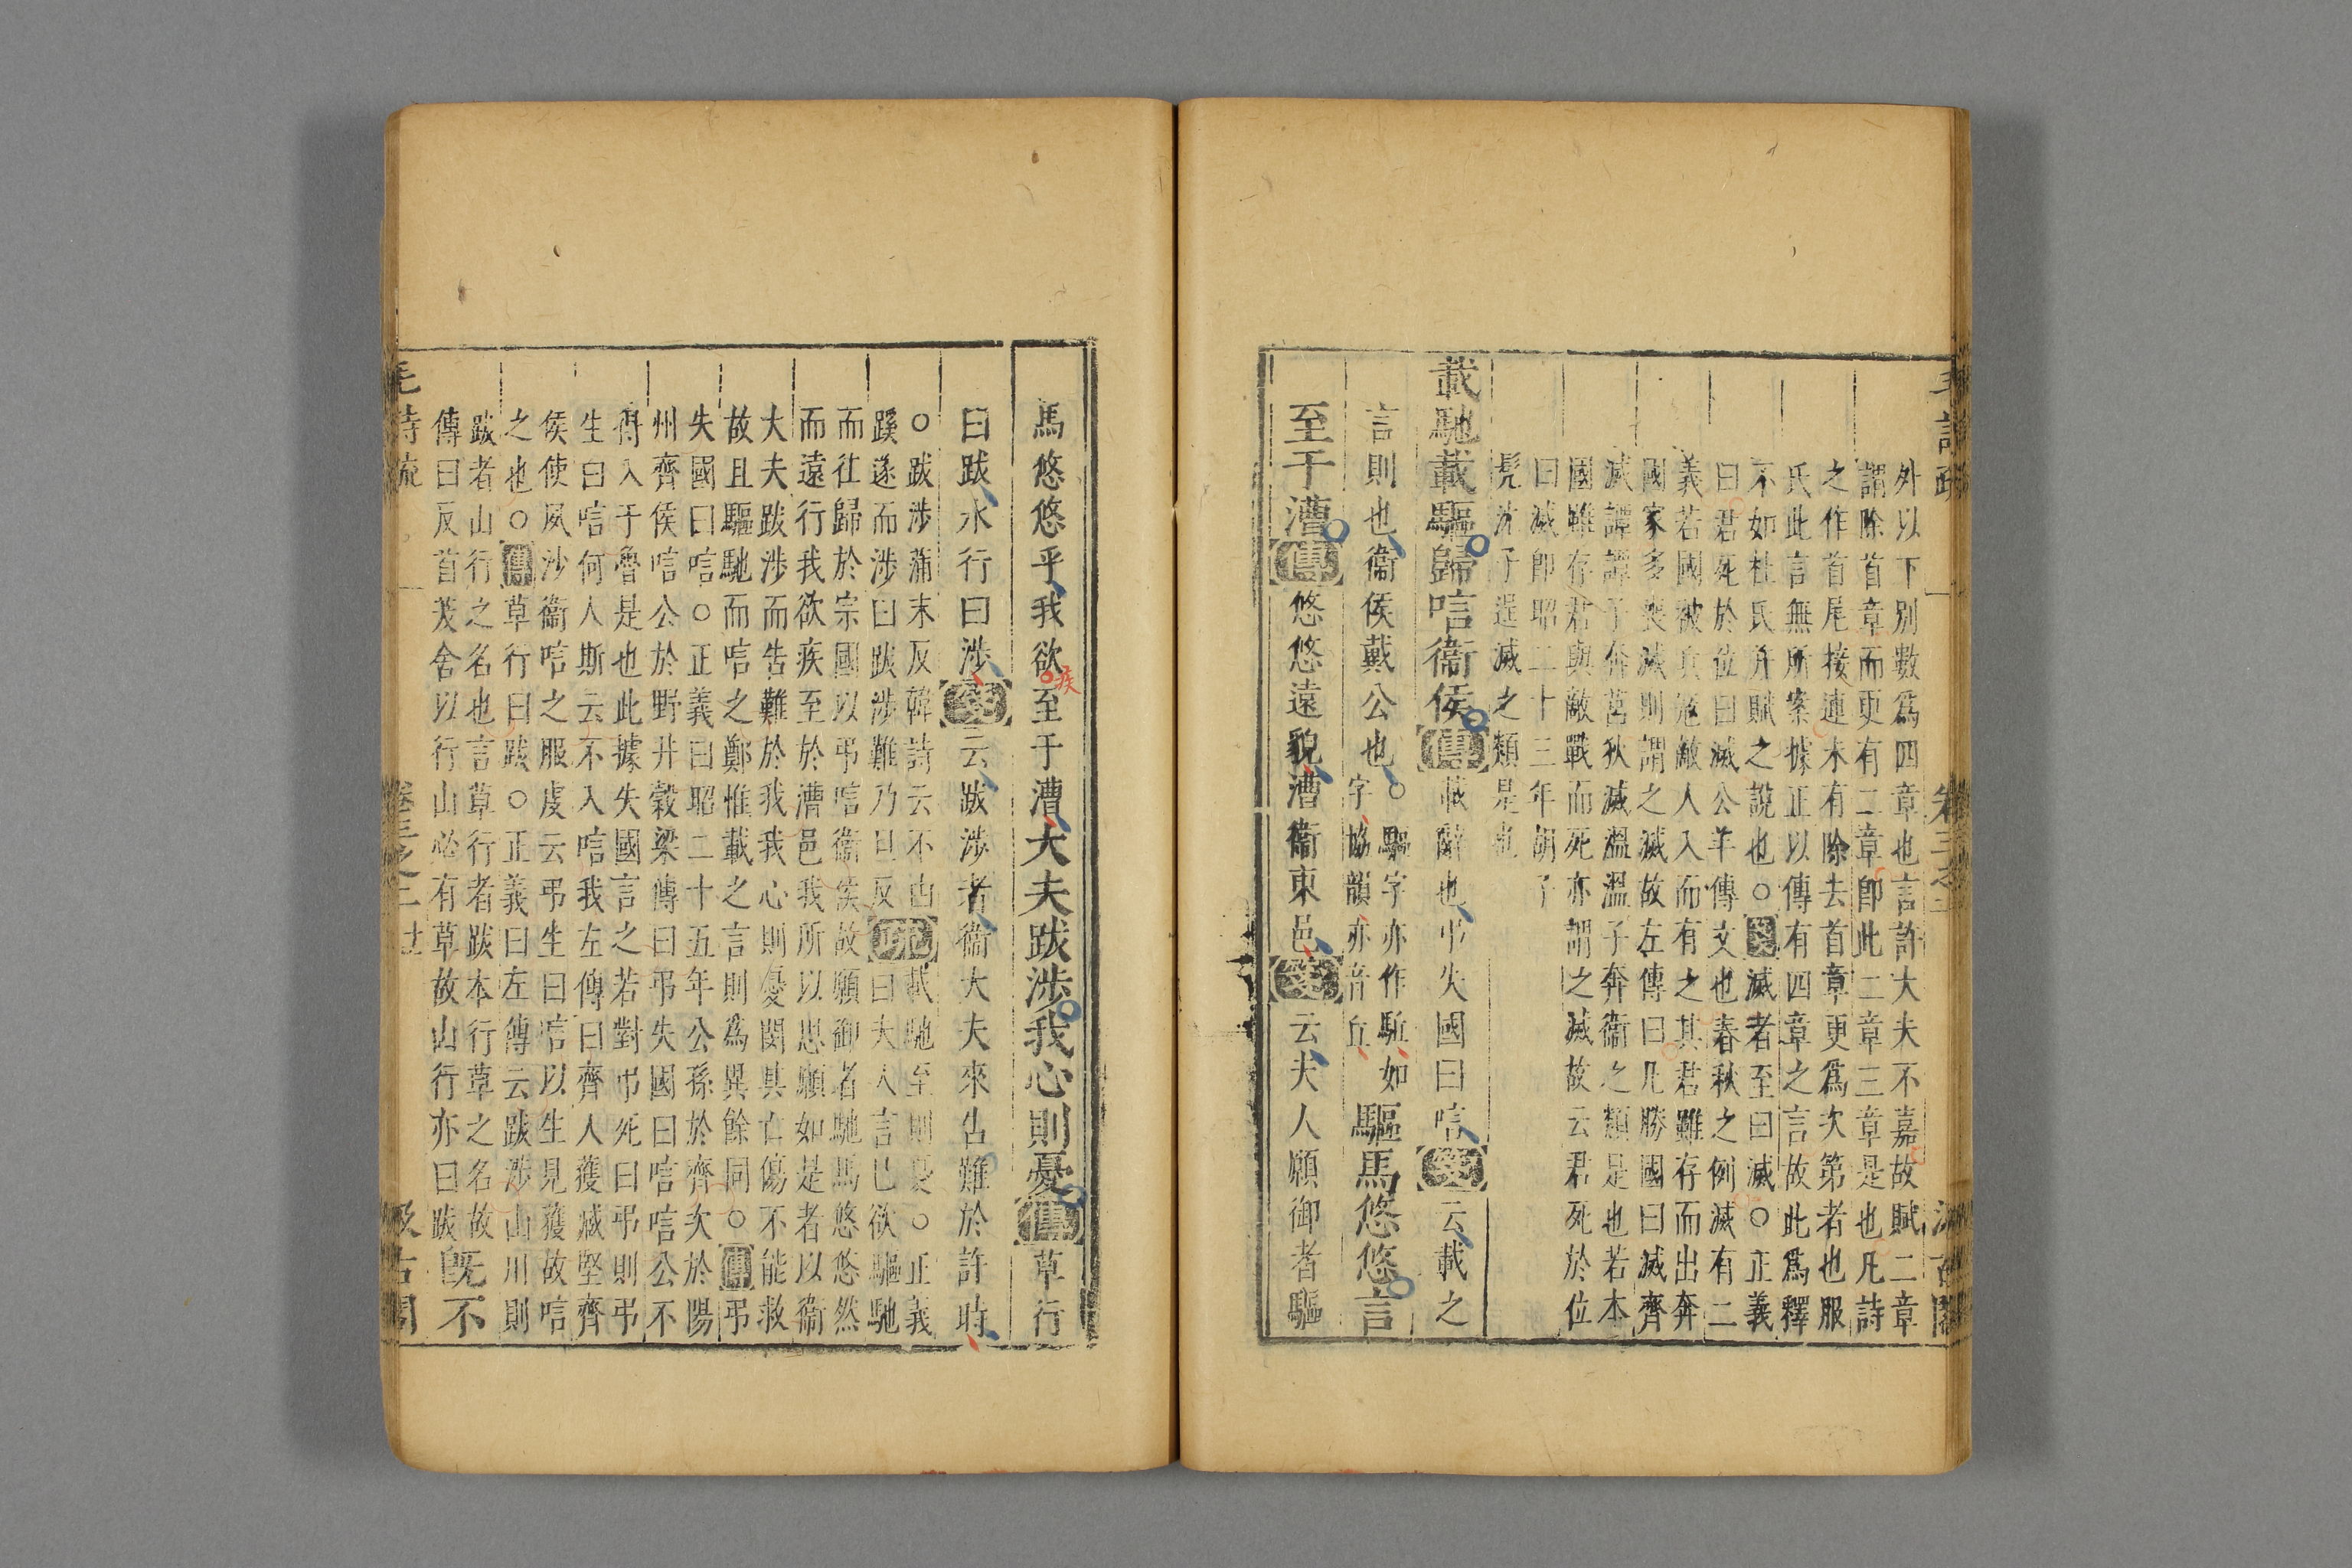 外以下別數爲四章也言許大夫不嘉故賦二章
謂除首章而更有二章即此二章三章是也凡詩
之作首尾接連未有除去首章更爲次第者也服
氏此言無所案據正以傳有四章之言故此爲釋
不如杜氏幷賦之說也○箋滅者至曰滅○正義
曰君死於位曰滅公羊傳文也春秋之例滅有二
義若國被兵寇敵人入而有之其君雖存而出奔
國家多喪滅則謂之滅故左傳曰凡勝國曰滅齊
滅譚譚子奔莒狄滅溫溫子奔衞之類是也若本
國雖存君與敵戰而死亦謂之滅故云君死於位
曰滅即昭二十三年胡子
髡沈子逞滅之類是也
載馳載驅歸唁衞侯傳載辭也弔失國曰唁箋云載之
言則也衞侯戴公也○驅字亦作駈如字協韻亦音丘驅馬悠悠言
至于漕傳悠悠遠貌漕衞東邑箋云夫人願御者驅
毛詩疏 卷三之二 汲古閣
馬悠悠乎我欲至于漕大夫跋涉我心則憂傳草行
疾
曰跋水行曰涉箋云跋涉者衞大夫來告難於許時
○跋涉蒲末反韓詩云不由
蹊遂而涉曰跋涉難乃旦反疏載馳至則憂○正義曰夫人言已欲驅馳
而往歸於宗國以弔唁衞侯故願御者馳馬悠悠然
而遠行我欲疾至於漕邑我所以思願如是者以衞
大夫跋涉而告難於我我心則憂閔其亡傷不能救
故且驅馳而唁之鄭惟載之言則爲異餘同○傳弔
失國曰唁○正義曰昭二十五年公孫於齊次於陽
州齊侯唁公於野井穀梁傳曰弔失國曰唁唁公不
得入于魯是也此據失國言之若對弔死曰弔則弔
生曰唁何人斯云不入唁我左傳曰齊人獲臧堅齊
侯使夙沙衞唁之服虔云弔生曰唁以生見獲故唁
之也○傳草行曰跋○正義曰左傳云跋涉山川則
跋者山行之名也言草行者跋本行草之名故
傳曰反首茇舍以行山必有草故山行亦曰跋旣不
毛詩疏 卷三之二 廿 汲古閣